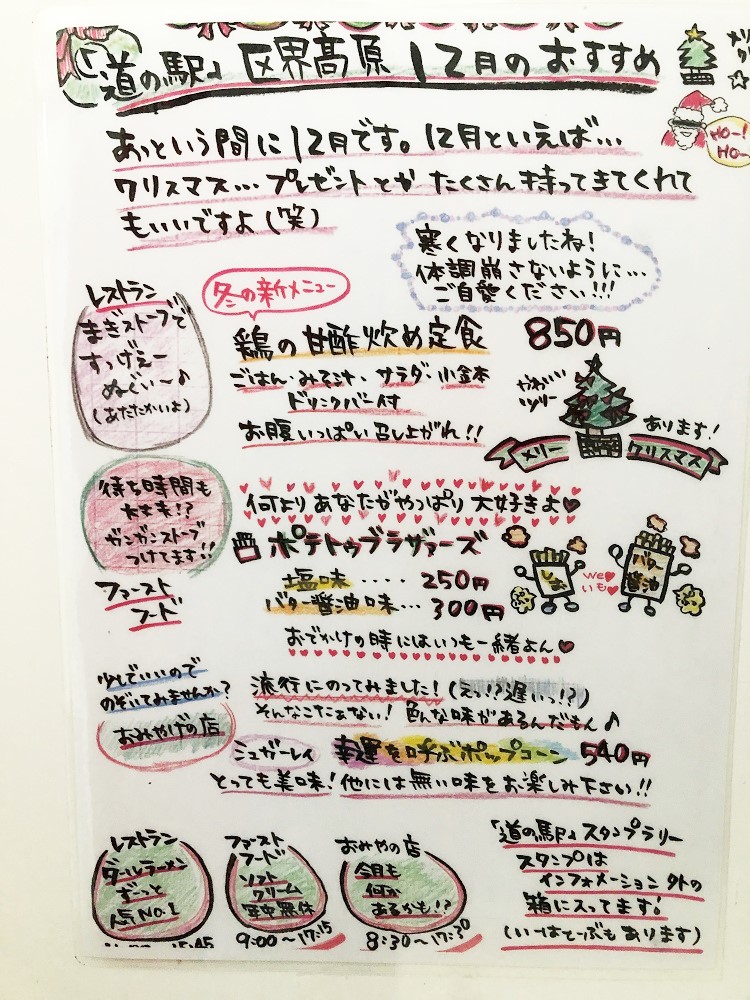 「道の駅」区界高原 12月のおすすめ
HO-!
HO-
あっという間に12月です。12月といえば…
クリスマス…プレゼントとか たくさん持ってきてくれて
もいいですよ(笑)
寒くなりましたね!
体調崩さないように…
ご自愛ください!!!
レストラン
まきストーブで
すっげえー
ぬぐい〜♪
(あたたかいよ)
冬の新メニュー
鶏の甘酢炒め定食 850円
ごはん・みそ汁・サラダ・小金本
ドリンクバー付
お腹いっぱい召し上がれ!!
かわいい
ツリー
あります!
メリー クリスマス
待ち時間も
大丈夫!?
ガンガンストーブ
つけてます!!
何よりあなたがやっぱり大好きよ♥
ポテトゥブラザァーズ
塩味‥‥250円
バター醤油味…300円
we♥
いも♥
バター
醤油
ファースト
フード
おでかけの時にはいつも一緒よん♥
少しでいいので
のぞいてみませんか?
おみやげの店
流行にのってみました!(えっ!?遅いっ!?)
そんなこたぁない! 色んな味があるんだもん♪
シュガーレイ 幸運を呼ぶポップコーン 540円
とっても美味!他には無い味をお楽しみ下さい!!
レストラン
ダールラーメン
ずーっと
人気NO.1
ファースト
フード
ソフト
クリーム
年中無休
9:00〜17:15
おみやの店
今月も
何か
あるかも!?
8:30〜17:30
「道の駅」スタンプラリー
スタンプは
インフォメーション外の
箱に入ってます!
(いーはとーぶもあります)